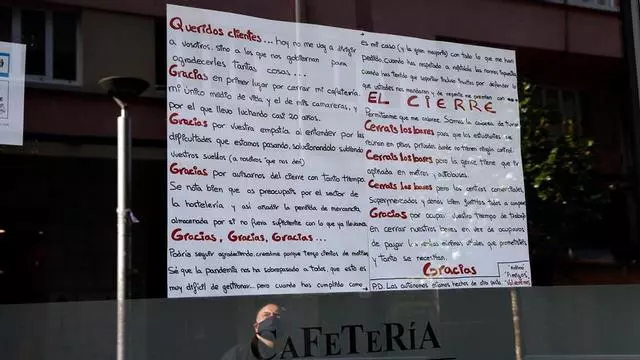 Queridos clientes... hoy no me voy a dirigir
a vosotros, sino a los que nos gobiernan para
agradecerles tantas cosas...
Gracias en primer lugar por cerrar mi cafetería,
mi único medio de vida y el de mis camareras, y
por el que llevo luchando casi 20 años.
Gracias por vuestra empatía al entender por las
dificultades que estamos pasando, solucionandolo subiendo
vuestros sueldos (a nosotros que nos den)
Gracias por avisarnos del cierre con tanto tiempo.
Se nota bien que os preocupais por el sector de
la hostelería y así añadir la perdida de mercancía
almacenada por si no fuera suficiente con lo que ya llevamos.
Gracias, Gracias, Gracias...
Podría seguir agradeciendo, creanme porque tengo cientos de motivos
Sé que la pandemia nos ha sobrepasado a todos, que esto es
muy difícil de gestionar, pero cuando has cumplido como
es mi caso (y la gran mayoría) con todo lo que me han
pedido, cuando has respetado a rajatabla las normas
cuando has tenido que soportar por defender lo
que nos mandaron y de repente me premian con
EL CIERRE
Permitanme que me cabree. Somos la cabeza de turco
Cerrais los bares para que los estudiantes se
reunan en pisos privados donde no tienen ningún control.
Cerrais los bares pero la gente tiene que ir
apiñada en metros y autobuses.
Cerrais los bares pero los centros comerciales,
supermercados y demás bien juntitos todos a comprar
Gracias por ocupar vuestro tiempo de trabajo
en cerrar nuestros bares en vez de ocuparos
de pagar las ayudas mínimas vitales que prometisteis
y tanto se necesitan.
Gracias
P.D. Los autónomos estamos hechos de otra pasta
CAFETERÍA